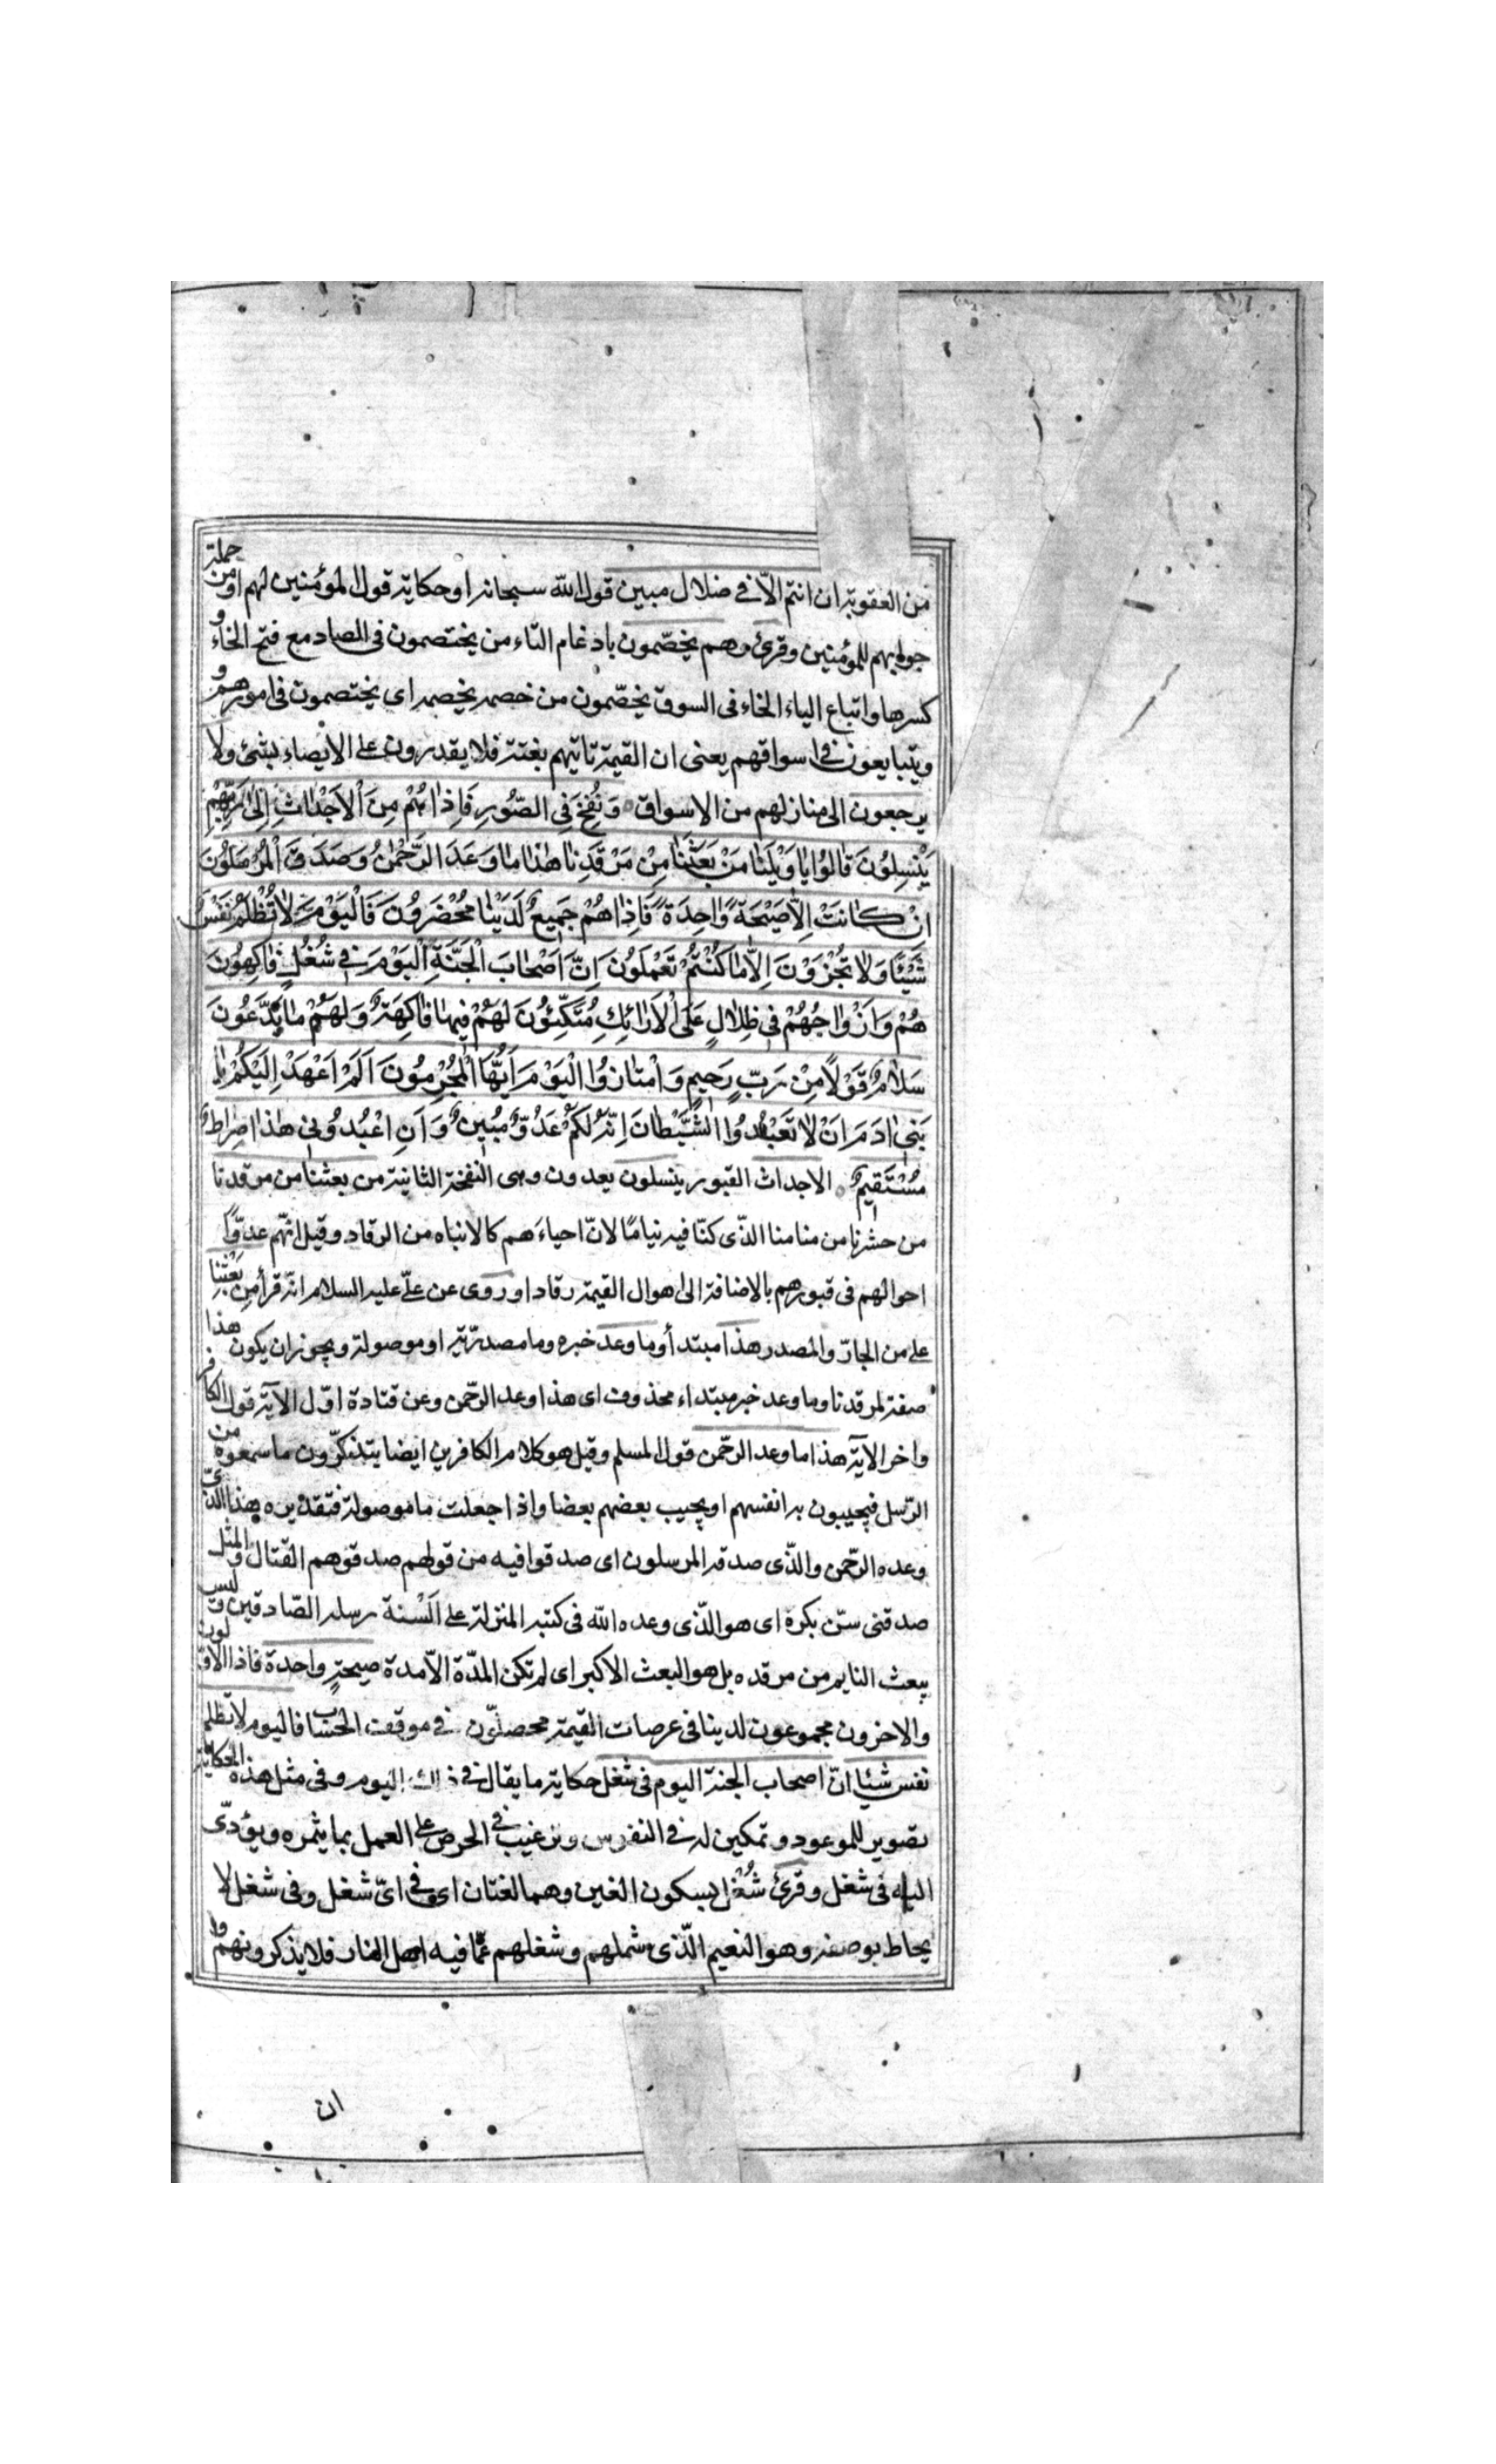 من العقوبة ان انتم الّا فى ضلال مبين قول اللّه سبحانه او حكاية قول المؤمنين لهم او من جملة
جوابهم للمؤمنين وقرئ وهم يخصّمون بادغام التاء من يختصمون فى الصاد مع فتح الخاء و
كسرها واتباع الياء الخاء فى السوق يخصّمون من خصمه يخصمه اى يختصمون فى امورهم و
ويتبايعون فى اسواقهم يعنى ان القيمة تاتيهم بغتة فلا يقدرون على الايصاء بشئ ولا
يرجعون الى منازلهم من الاسواق وَنُفِخَ فِى الصُّورِ فَاِذاهُمْ مِنَ اْلاَجْداثِ اِلىٰ رَبِّهِمْ
يَنْسِلُونَ قالُوا ياوَيْلَنا مَنْ بَعَثَنا مِنْ مَرْقَدِنا هٰذا ماوَعَدَ الرَّحْمٰنُ وَصَدَقَ اْلمُرْسَلُونَ
اِنْ كانَتْ اِلاّ صَيْحَةً واحِدَةً فَاِذاهُمْ جَمِيعٌ لَدَيْنا مُحْضَرُونَ فَالْيَوْمَ لاتُظْلَمُ نَفْسٌ
شَيْئًا وَلا تُجْزَوْنَ اِلاّ ماكُنْتُمْ تَعْمَلُونَ اِنَّ اَصْحابَ الْجَنَّةِ الْيَوْمَ فى شُغُلٍ فاكِهُونَ
هُمْ وَاَزْواجُهُمْ فى ظِلالٍ عَلَى اْلاَرائِكِ مُتَّكِئُونَ لَهُمْ فيها فاكِهَةٌ وَلَهُمْ مايَدَّعُونَ
سَلامٌ قَوْلاً مِنْ رَبٍّ رَحيمٍ وَامْتازُوا الْيَوْمَ اَيُّهَا الْمُجْرِمُونَ اَلَمْ اَعْهَدْ اِلَيْكُمْ يا
بَنى ادَمَ اَنْ لاتَعْبُدُوا الشَّيْطانَ اِنَّهُ لَكُمْ عَدُوٌّ مُبينٌ وَاَنِ اعْبُدُونى هٰذا صِراطٌ
مُسْتَقيمٌ الاجداث القبور ينسلون يعدون وهى النفخة الثانية من بعثنا من مرقدنا
من حشرنا من منامنا الذّى كنّا فيه نياماً لانّ احياءَهم كالانباه من الرقاد وقيل انّهم عدوّا
احوالهم فى قبورهم بالاضافة الى اهوال القيمة رقادا وروى عن علىّ عليه السلام انّه قرأ مِن بَعْثِنا
على من الجارّ والمصدر هذا مبتدأ وما وعد خبره وما مصدريّة او موصولة ويجوز ان يكون هذا
صفة لمرقدنا وما وعد خبر مبتداء محذوف اى هذا وعد الرّحمن وعن قتادة اوّل الآية قول الكافر
واخر الآية هذا ما وعد الرّحمن قول المسلم وقيل هو كلام الكافرين ايضا يتذكّرون ما سمعوه من
الرّسل فيجيبون به انفسهم او يجيب بعضهم بعضا واذا جعلت ما موصولة فتقديره هذا الّذى
وعده الرّحمن والذّى صدقه المرسلون اى صدقوا فيه من قولهم صدقوهم القتال والمثل
صدقنى سنّ بكره اى هو الذّى وعده اللّه فى كتبه المنزلة على اَلْسُنة رسله الصّادقين و ليس
ببعث النايم من مرقده بل هو البعث الاكبر اى لم تكن المدّة الّا مدة صيحةٍ واحدة فاذا الاوّلون
والاخرون مجموعون لدينا فى عرصات القيمة محصلون فى موقف الحساب فاليوم لاتظلم
نفس شيئا انّ اصحاب الجنة اليوم فى شغل حكاية ما يقال فى ذلك اليوم وفى مثل هذه الحكاية
تصوير للموعود وتمكين له فى النفوس وترغيب فى الحرص على العمل بما يثمره ويؤدّى
اليه فى شغل وقرئ شُغْل بسكون الغين وهما لغتان اى فى اىّ شغل وفى شغل لا
يحاط بوصفه وهو النعيم الّذى شملهم وشغلهم عمّا فيه اهل النار فلا يذكرونهم و
ان